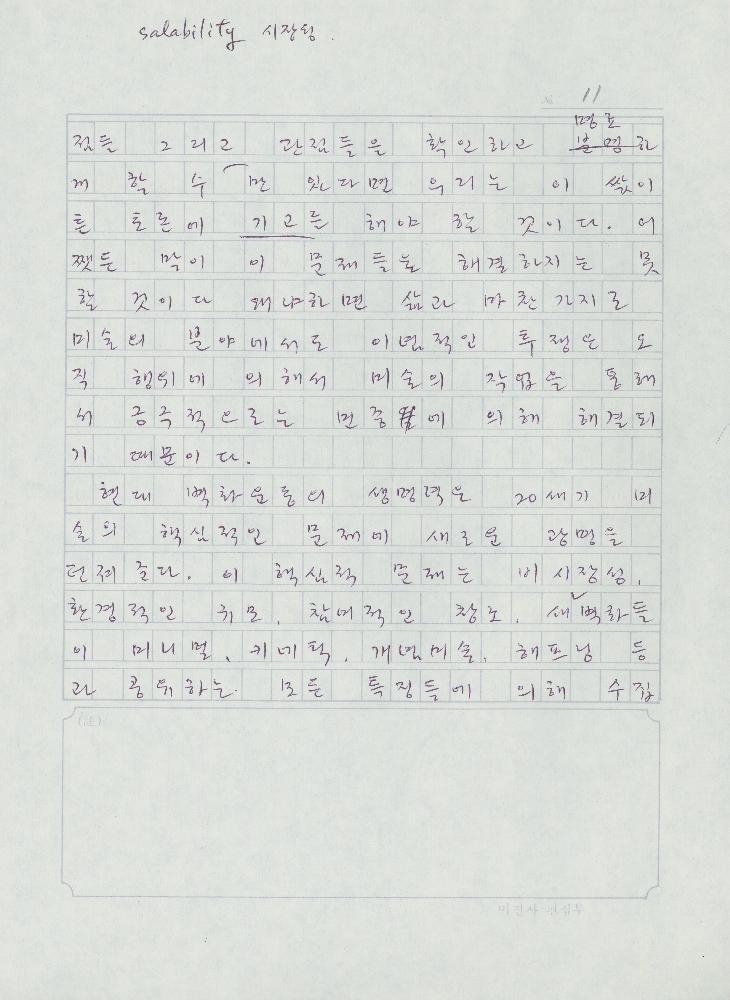 salability 시장성.
No. 11
명료
점들 그리고 관점들을 확인하고 분명하
게 할 수 만 있다면 우리는 이 싹이
튼 토론에 기고를 해야 할 것이다. 어
쨋든 말이 이 문제들을 해결하지는 못
할 것이다 왜냐하면 삶과 마찬가지로
미술의 분야에서도 이념적인 투쟁은 오
직 행위에 의해서 미술의 작업을 통해
서 궁극적으로는 민중에 의해 해결되
기 때문이다.
현대 벽화운동의 생명력은 20세기 미
술의 핵심적인 문제에 새로운 광명을
던져 준다. 이 핵심적 문제는 비시장성,
환경적인 규모, 참여적인 창조, 새벽화들
이 미니멀, 키네틱, 개념미술, 해프닝 등
과 공유하는 모든 특징들에 의해 수집
(註)
미진사 편집부